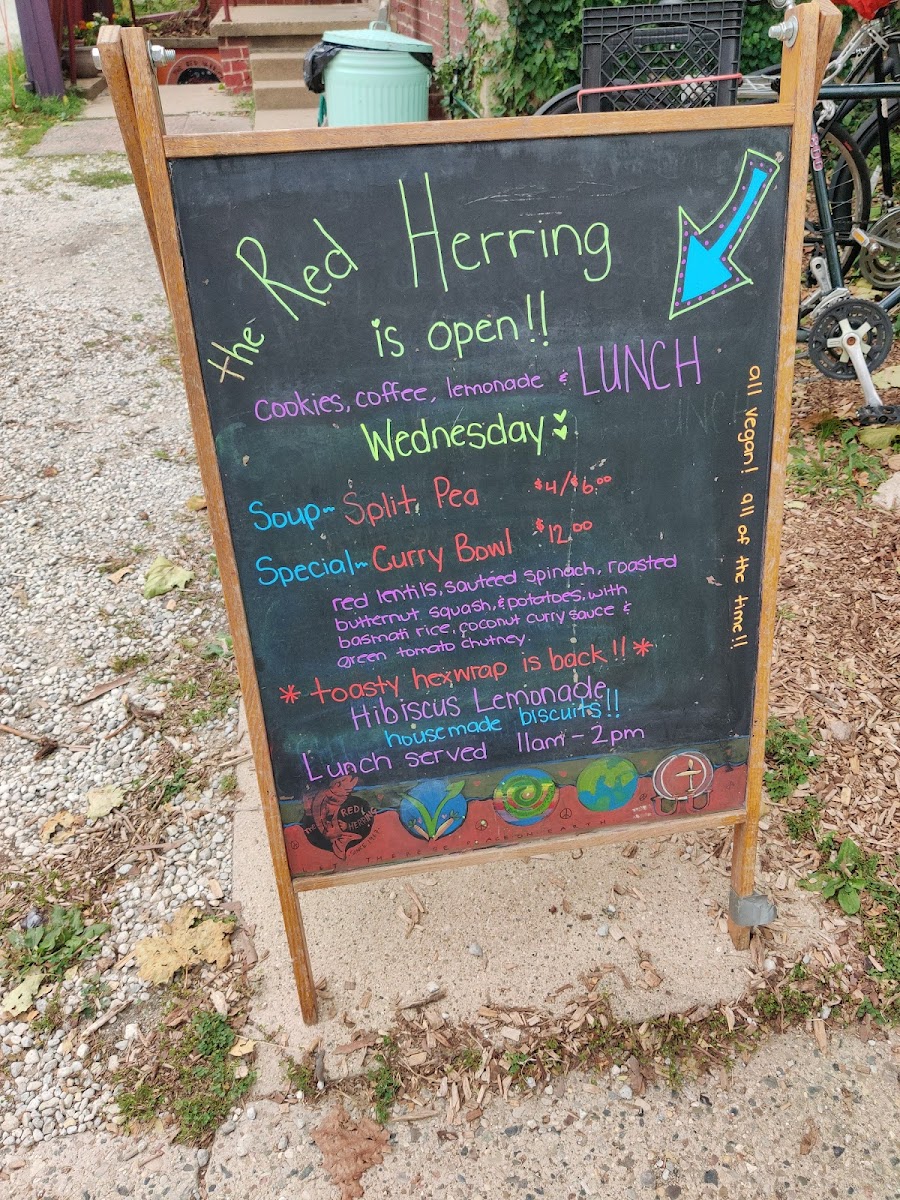 the Red Herring
is open!!
cookies, coffee, lemonade & LUNCH
Wednesday
Soup~ Split Pea $4/$6.00
Special~ Curry Bowl $12.00
red lentils, sautéed spinach, roasted
butternut squash, & potatoes, with
basmati rice, coconut curry sauce &
green tomato chutney.
* toasty hexwrap is back!! *
Hibiscus Lemonade
housemade biscuits!!
Lunch served 11am - 2pm
all vegan! all of the time!!
THE RED HERRING
LET THERE BE PEACE ON EARTH